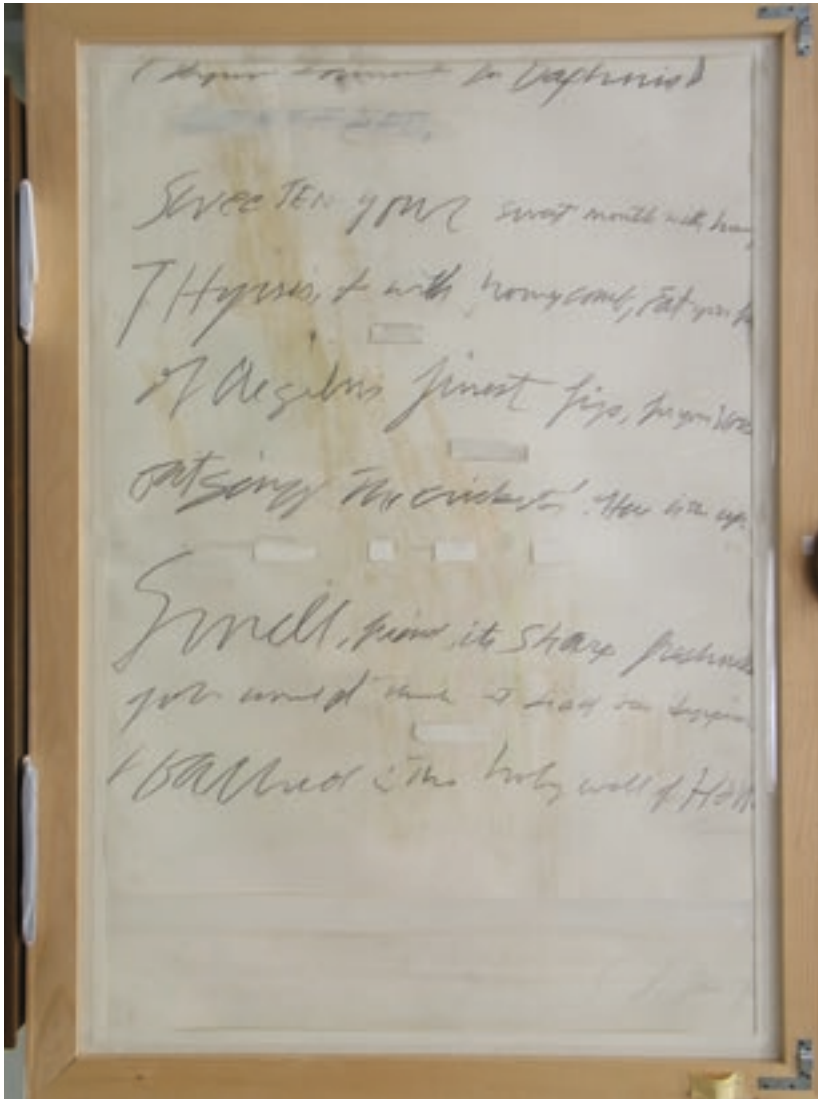 Daphnis)
SWEETEN your sweet mouth with
THyrsis, & with honeycomb, Eat your
of Aegilus finest figs, for your
outsings The cricket's! Here is the cup
Smell, friend, its sharp freshness
you would think it had been
& bathed in the holy well of